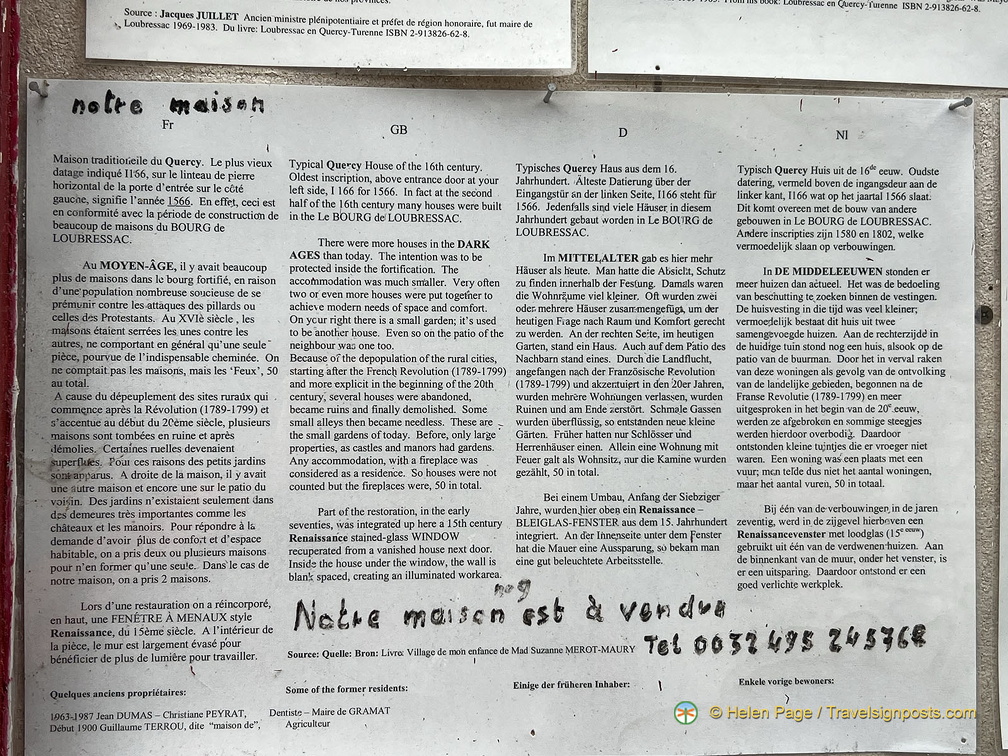 Source : Jacques JUILLET Ancien ministre plénipotentiaire et préfet de région honoraire, fut maire de
Loubressac 1969-1983. Du livre: Loubressac en Quercy-Turenne ISBN 2-913826-62-8.
From his book: Loubressac en Quercy-Turenne ISBN 2-913826-62-8.
notre maison
Fr
Maison traditionelle du Quercy. Le plus vieux
datage indiqué I166, sur le linteau de pierre
horizontal de la porte d'entrée sur le côté
gauche, signifie l'année 1566. En effet, ceci est
en conformité avec la période de construction de
beaucoup de maisons du BOURG de
LOUBRESSAC.
Au MOYEN-ÂGE, il y avait beaucoup
plus de maisons dans le bourg fortifié, en raison
d'une population nombreuse soucieuse de se
prémunir contre les attaques des pillards ou
celles des Protestants. Au XVIè siècle, les
maisons étaient serrées les unes contre les
autres, ne comportant en général qu'une seule
pièce, pourvue de l'indispensable cheminée. On
ne comptait pas les maisons, mais les 'Feux', 50
au total.
A cause du dépeuplement des sites ruraux qui
commence après la Révolution (1789-1799) et
s'accentue au début du 20ème siècle, plusieurs
maisons sont tombées en ruine et après
démolies. Certaines ruelles devenaient
superflues. Pour ces raisons des petits jardins
sont apparus. A droite de la maison, il y avait
une autre maison et encore une sur le patio du
voisin. Des jardins n'existaient seulement dans
des demeures très importantes comme les
châteaux et les manoirs. Pour répondre à la
demande d'avoir plus de confort et d'espace
habitable, on a pris deux ou plusieurs maisons
pour n'en former qu'une seule. Dans le cas de
notre maison, on a pris 2 maisons.
Lors d'une restauration on a réincorporé,
en haut, une FENÊTRE À MENAUX style
Renaissance, du 15ème siècle. A l'intérieur de
la pièce, le mur est largement évasé pour
bénéficier de plus de lumière pour travailler.
GB
Typical Quercy House of the 16th century.
Oldest inscription, above entrance door at your
left side, I 166 for 1566. In fact at the second
half of the 16th century many houses were built
in the Le BOURG de LOUBRESSAC.
There were more houses in the DARK
AGES than today. The intention was to be
protected inside the fortification. The
accommodation was much smaller. Very often
two or even more houses were put together to
achieve modern needs of space and comfort.
On your right there is a small garden; it's used
to be another house. Even so on the patio of the
neighbour was one too.
Because of the depopulation of the rural cities,
starting after the French Revolution (1789-1799)
and more explicit in the beginning of the 20th
century, several houses were abandoned,
became ruins and finally demolished. Some
small alleys then became needless. These are
the small gardens of today. Before, only large
properties, as castles and manors had gardens.
Any accommodation, with a fireplace was
considered as a residence. So houses were not
counted but the fireplaces were, 50 in total.
Part of the restoration, in the early
seventies, was integrated up here a 15th century
Renaissance stained-glass WINDOW
recuperated from a vanished house next door.
Inside the house under the window, the wall is
blank spaced, creating an illuminated workarea.
D
Typisches Quercy Haus aus dem 16.
Jahrhundert. Älteste Datierung über der
Eingangstür an der linken Seite, I166 steht für
1566. Jedenfalls sind viele Häuser in diesem
Jahrhundert gebaut worden in Le BOURG de
LOUBRESSAC.
Im MITTELALTER gab es hier mehr
Häuser als heute. Man hatte die Absicht, Schutz
zu finden innerhalb der Festung. Damals waren
die Wohnräume viel kleiner. Oft wurden zwei
oder mehrere Häuser zusammengefügt, um der
heutigen Frage nach Raum und Komfort gerecht
zu werden. An der rechten Seite, im heutigen
Garten, stand ein Haus. Auch auf dem Patio des
Nachbarn stand eines. Durch die Landflucht,
angefangen nach der Französische Revolution
(1789-1799) und akzentuiert in den 20er Jahren,
wurden mehrere Wohnungen verlassen, wurden
Ruinen und am Ende zerstört. Schmale Gassen
wurden überflüssig, so entstanden neue kleine
Gärten. Früher hatten nur Schlösser und
Herrenhäuser einen. Allein eine Wohnung mit
Feuer galt als Wohnsitz, nur die Kamine wurden
gezählt, 50 in total.
Bei einem Umbau, Anfang der Siebziger
Jahre, wurden hier oben ein Renaissance –
BLEIGLAS-FENSTER aus dem 15. Jahrhundert
integriert. An der Innenseite unter dem Fenster
hat die Mauer eine Aussparung, so bekam man
eine gut beleuchtete Arbeitsstelle.
Nl
Typisch Quercy Huis uit de 16de eeuw. Oudste
datering, vermeld boven de ingangsdeur aan de
linker kant, I166 wat op het jaartal 1566 slaat.
Dit komt overeen met de bouw van andere
gebouwen in Le BOURG de LOUBRESSAC.
Andere inscripties zijn 1580 en 1802, welke
vermoedelijk slaan op verbouwingen.
In DE MIDDELEEUWEN stonden er
meer huizen dan actueel. Het was de bedoeling
van beschutting te zoeken binnen de vestingen.
De huisvesting in die tijd was veel kleiner;
vermoedelijk bestaat dit huis uit twee
samengevoegde huizen. Aan de rechterzijde in
de huidige tuin stond nog een huis, alsook op de
patio van de buurman. Door het in verval raken
van deze woningen als gevolg van de ontvolking
van de landelijke gebieden, begonnen na de
Franse Revolutie (1789-1799) en meer
uitgesproken in het begin van de 20e eeuw,
werden ze afgebroken en sommige steegjes
werden hierdoor overbodig. Daardoor
ontstonden kleine tuintjes die er vroeger niet
waren. Een woning was een plaats met een
vuur; men telde dus niet het aantal woningen,
maar het aantal vuren, 50 in totaal.
Bij één van de verbouwingen, in de jaren
zeventig, werd in de zijgevel hierboven een
Renaissancevenster met loodglas (15e eeuw)
gebruikt uit één van de verdwenen huizen. Aan
de binnenkant van de muur, onder het venster, is
er een uitsparing. Daardoor ontstond er een
goed verlichte werkplek.
n°9
Notre maison est à vendre
Tel 0032 495 245768
Source: Quelle: Bron: Livre: Village de mon enfance de Mad Suzanne MEROT-MAURY
Quelques anciens propriétaires:
Some of the former residents:
Einige der früheren Inhaber:
Enkele vorige bewoners:
1963-1987 Jean DUMAS – Christiane PEYRAT, Dentiste – Maire de GRAMAT
Début 1900 Guillaume TERROU, dite "maison de", Agriculteur
© Helen Page / Travelsignposts.com